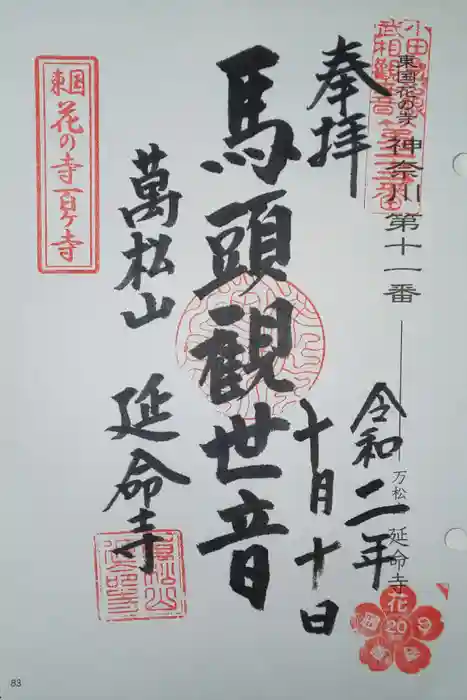 東国花の寺 神奈川 第十一番
万松 延命寺
奉拝
令和二年
十月十日
馬頭観世音
萬松山 延命寺
東国
花の寺百ヶ寺
花
20
83